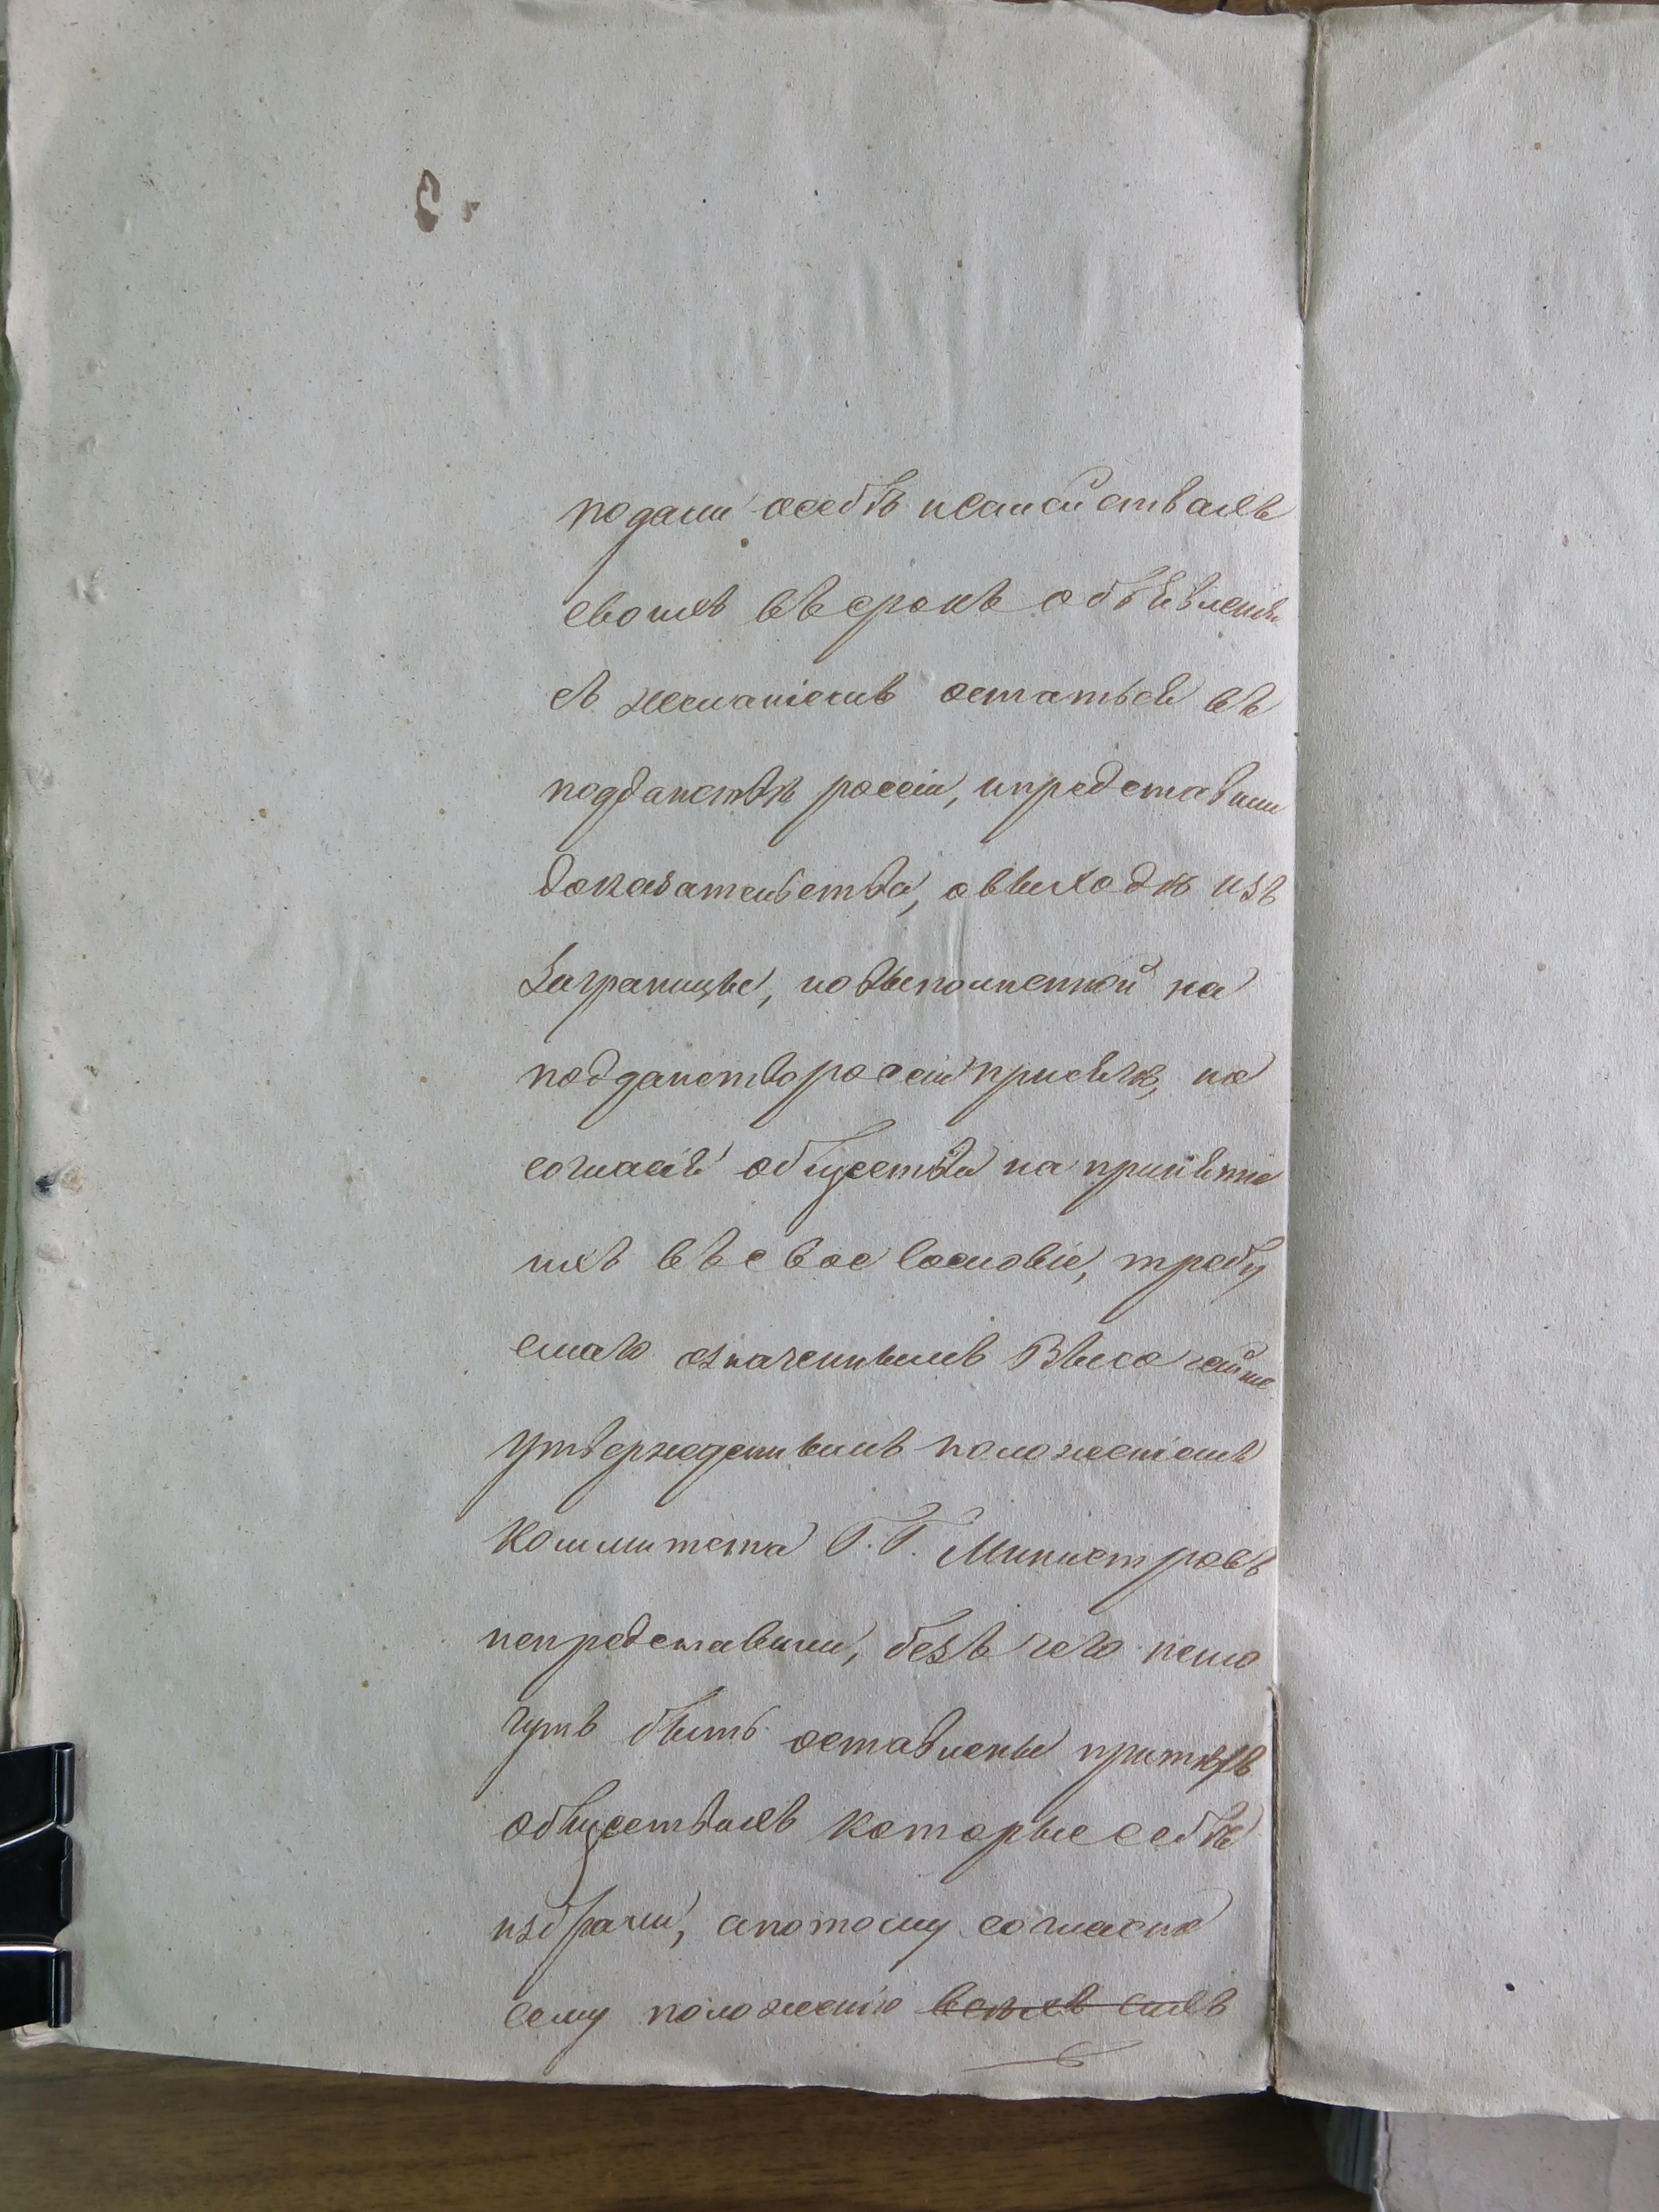 подали осебѣ исемействахъ
своихъ въ срокъ объявленія
съ желаніемъ остаться въ
подданствѣ россіи, ипредставили
доказательства, овыходѣ изъ
Заграницы, новыполненной на
подданство россіи присягѣ, но
согласія общества на принятіе
ихъ въ свое сословіе, требу
емаго означеннымъ Высочайше
утвержденнымъ положеніемъ
Коммитета Г.Г. Министровъ
непредставили, безъ чего немо
гутъ быть оставлены притѣхъ
обществахъ которые себѣ
избрали, апотому согласно
сему положенію всѣхъ сихъ